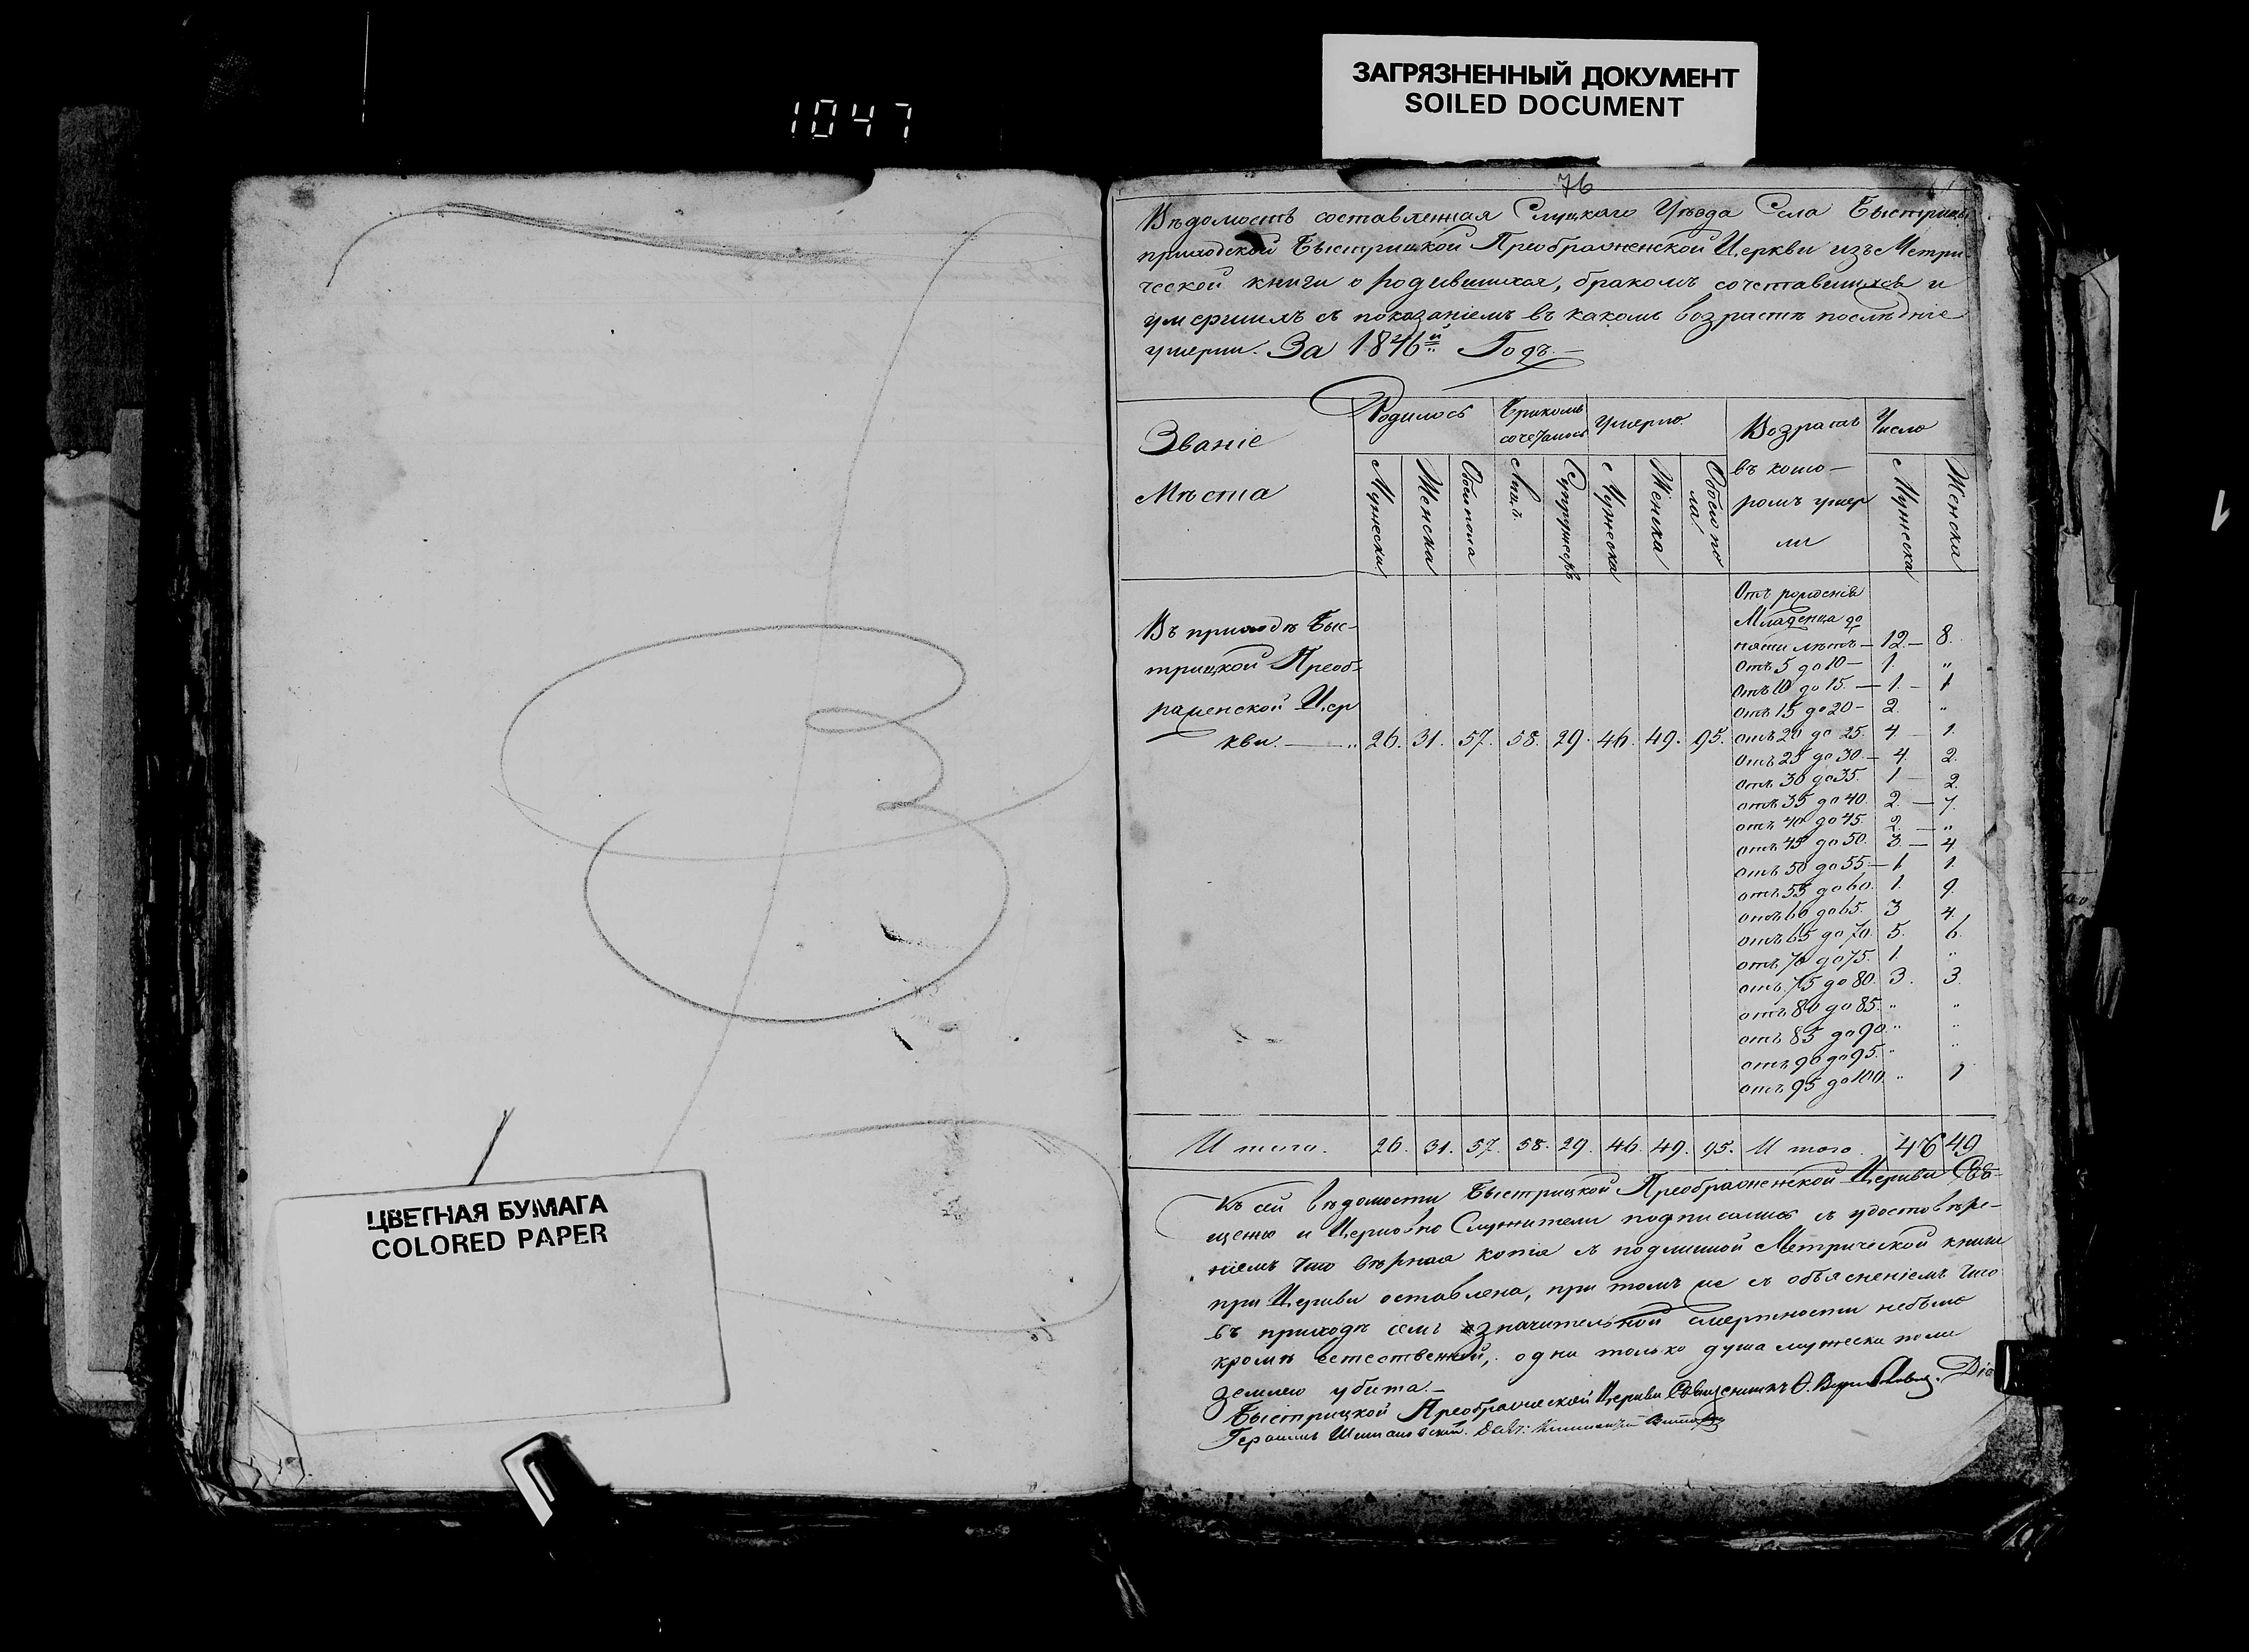 1047
ЗАГРЯЗНЕННЫЙ ДОКУМЕНТ
SOILED DOCUMENT
76
Вѣдомость составленная Слуцкаго Уѣзда Села Быстрицы
приходской Быстрицкой Преображенской Церкви изъ Метри-
ческой книги о родившихся, бракомъ сочетавшихся и
умершихъ съ показаніемъ въ какомъ возрастѣ послѣдніе
умерли. За 1846й Годъ.—
Званіе Мѣста
Родилось
Бракомъ сочеталось
Умерло.
Возрастъ въ кото—ромъ умерли
Число
Мужеска Женска Обоего пола Лицъ. Супружествъ Мужеска Женска Обоего пола Мужеска Женска
Отъ рожденія
Младенца до
пяти лѣтъ — 12. — 8.
отъ 5 до 10 — 1. „
отъ 10 до 15. — 1. — 1
отъ 15 до 20 — 2. „
Въ приходѣ Быс-
трицкой Преоб-
раженской Цер
кви. — „ 26. 31. 57. 58. 29. 46. 49. 95.
отъ 20 до 25. 4 — 1.
отъ 25 до 30. — 4. 2.
отъ 30 до 35. 1 — 2.
отъ 35 до 40. 2. — 7.
отъ 40 до 45. 2. — „
отъ 45 до 50. 3. — 4
отъ 50 до 55. — 1 1.
отъ 55 до 60. 1. 9.
отъ 60 до 65. 3 4.
отъ 65 до 70. 5. 6.
отъ 70 до 75. 1. „
отъ 75 до 80. 3. 3.
отъ 80 до 85. „ „
отъ 85 до 90. „ „
отъ 90 до 95. „ „
отъ 95 до 100. „ 1
Итого. 26. 31. 57. 58. 29. 46. 49. 95. Итого. 46 49
Къ сей вѣдомости Быстрицкой Преображенской Церкви Свя-
щенно и Церковно Служители подписались съ удостовѣре-
ніемъ что вѣрная копія съ подлинной Метрической книги
при Церкви оставлена, при томъ же съ объясненіемъ что
въ приходѣ семъ значительной смертности небыло
кромѣ естественной, одна только душа мужеска пола
землею убита.—
Быстрицкой Преображенской Церкви Священникъ
ЦВЕТНАЯ БУМАГА
COLORED PAPER